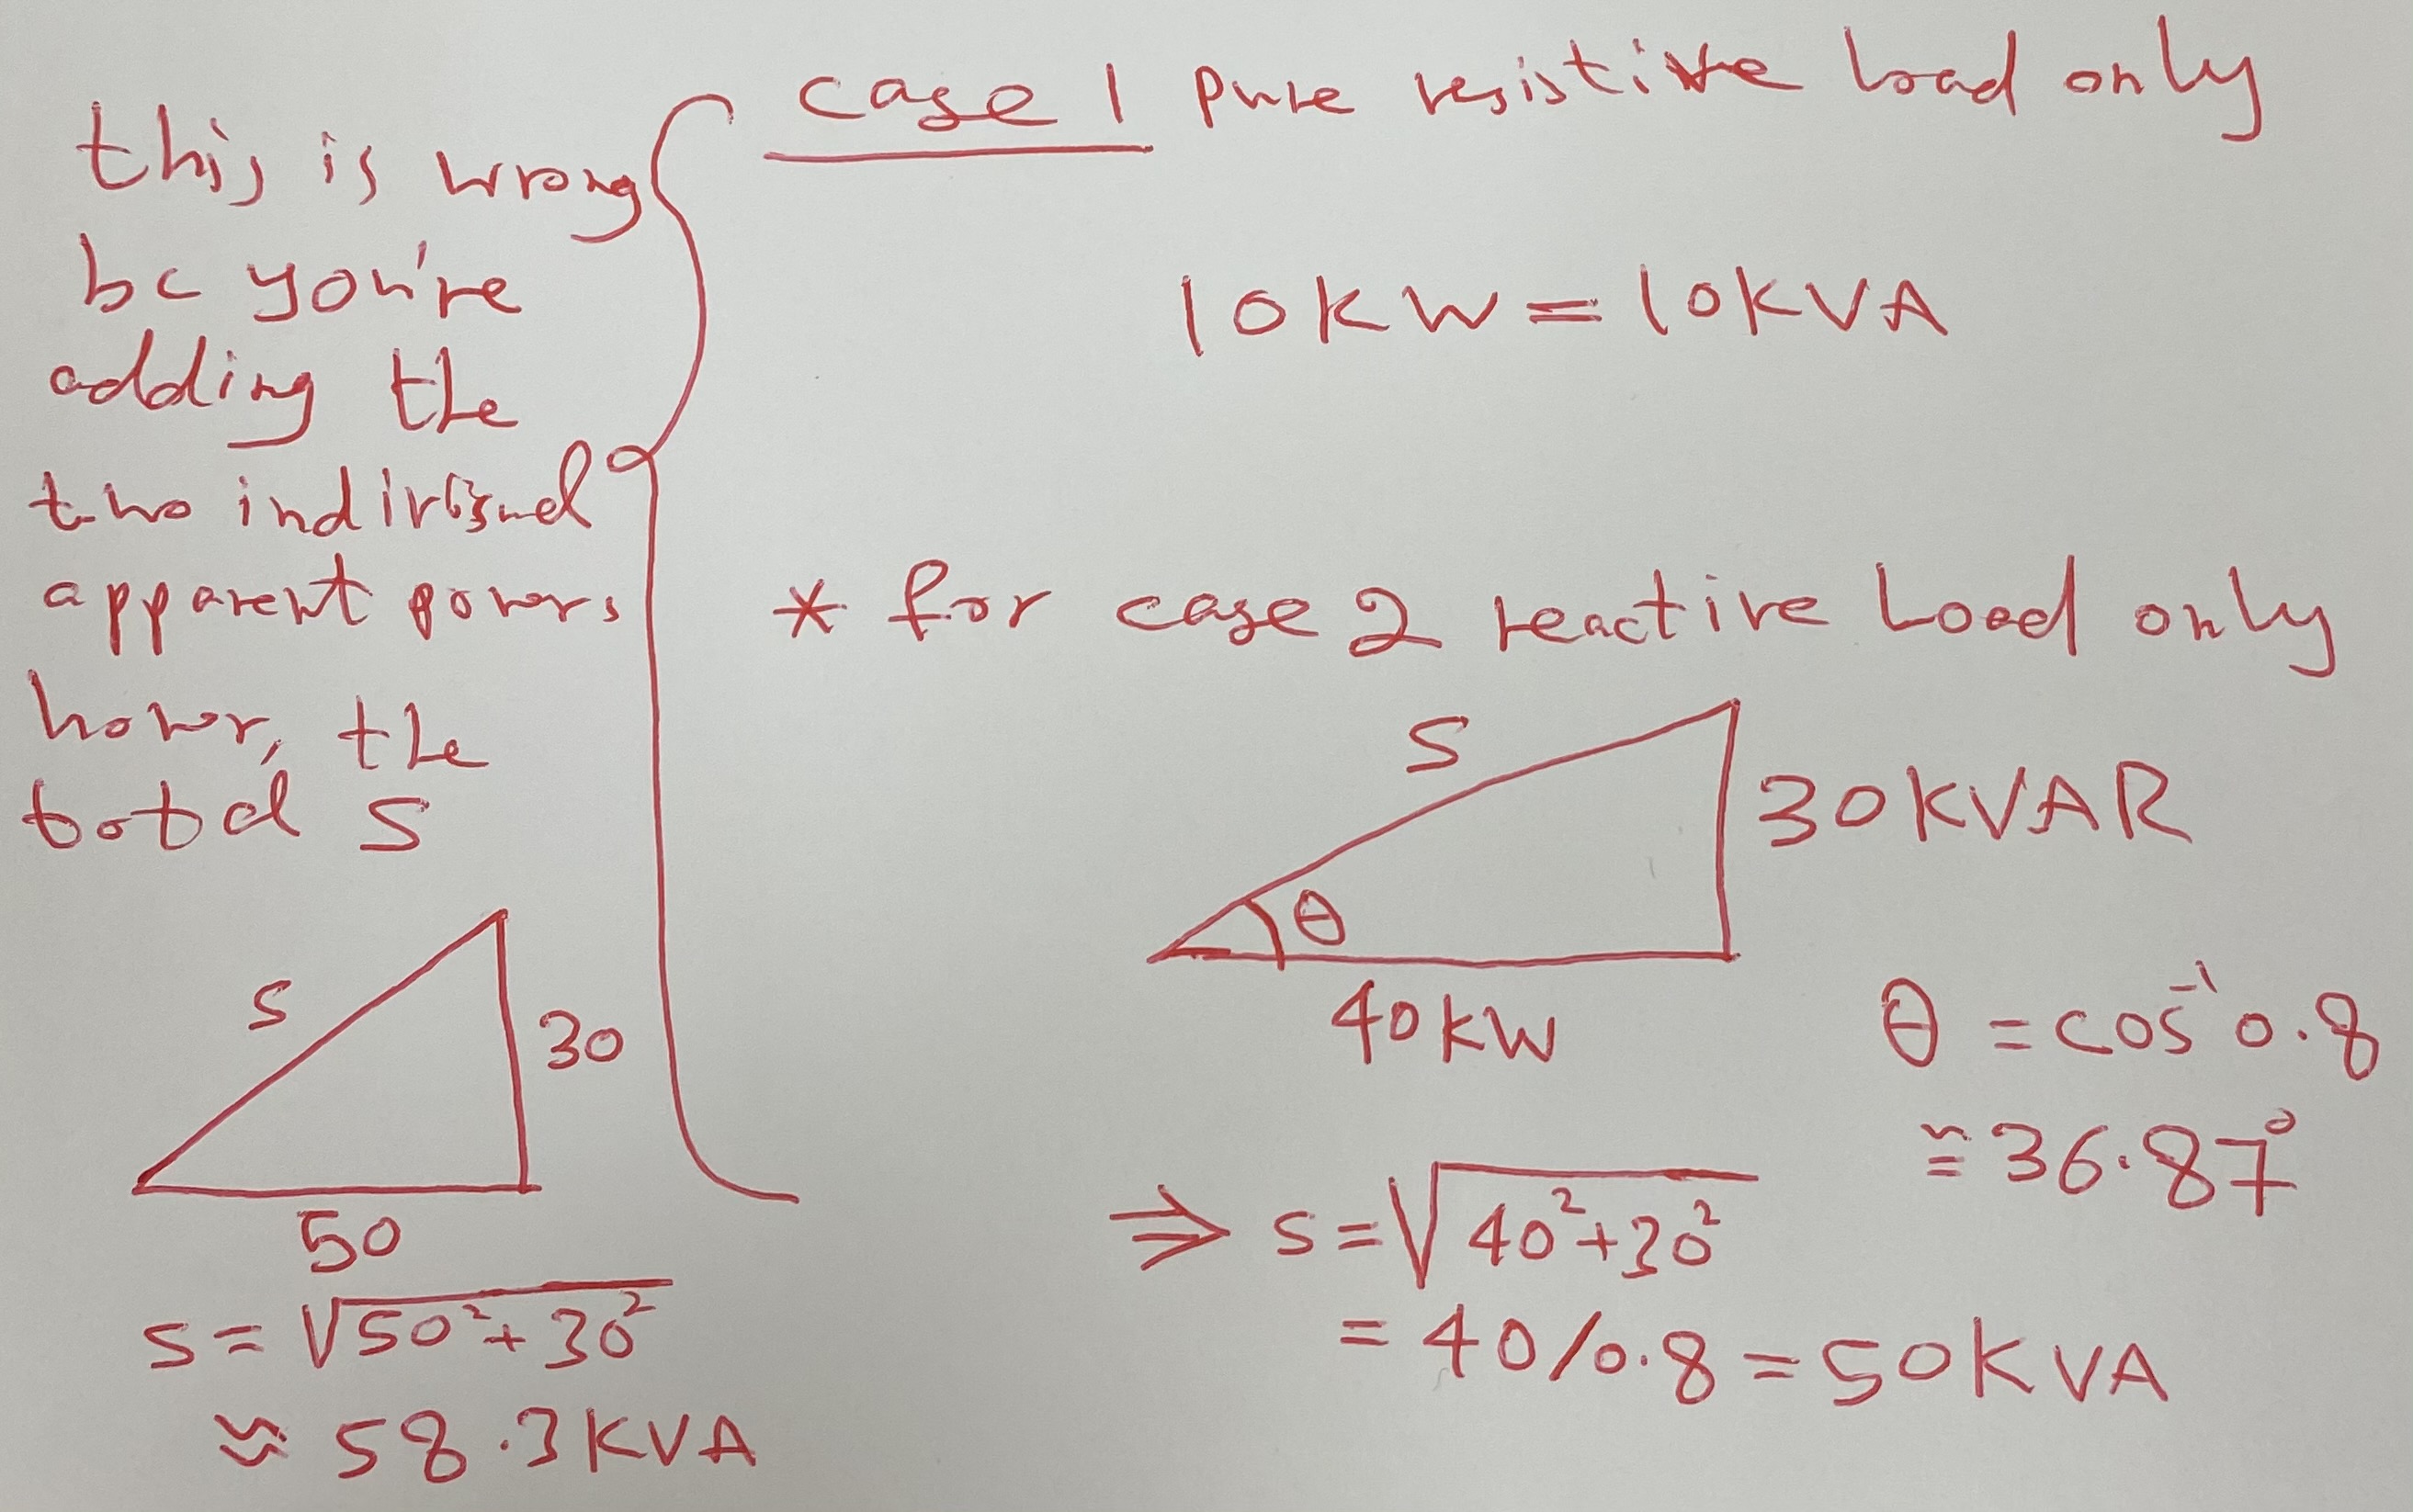 this is wrong
bc you're
adding the
two individual
apparent powers
howvr, the
total S
S
30
50
S = √50² + 30²
≈ 58.3KVA
case 1 pure resistive load only
10KW = 10KVA
* for case 2 reactive Load only
S
30KVAR
θ
40KW
θ = cos⁻¹0.8
≈ 36.87°
⇒ S = √40² + 30²
= 40/0.8 = 50KVA